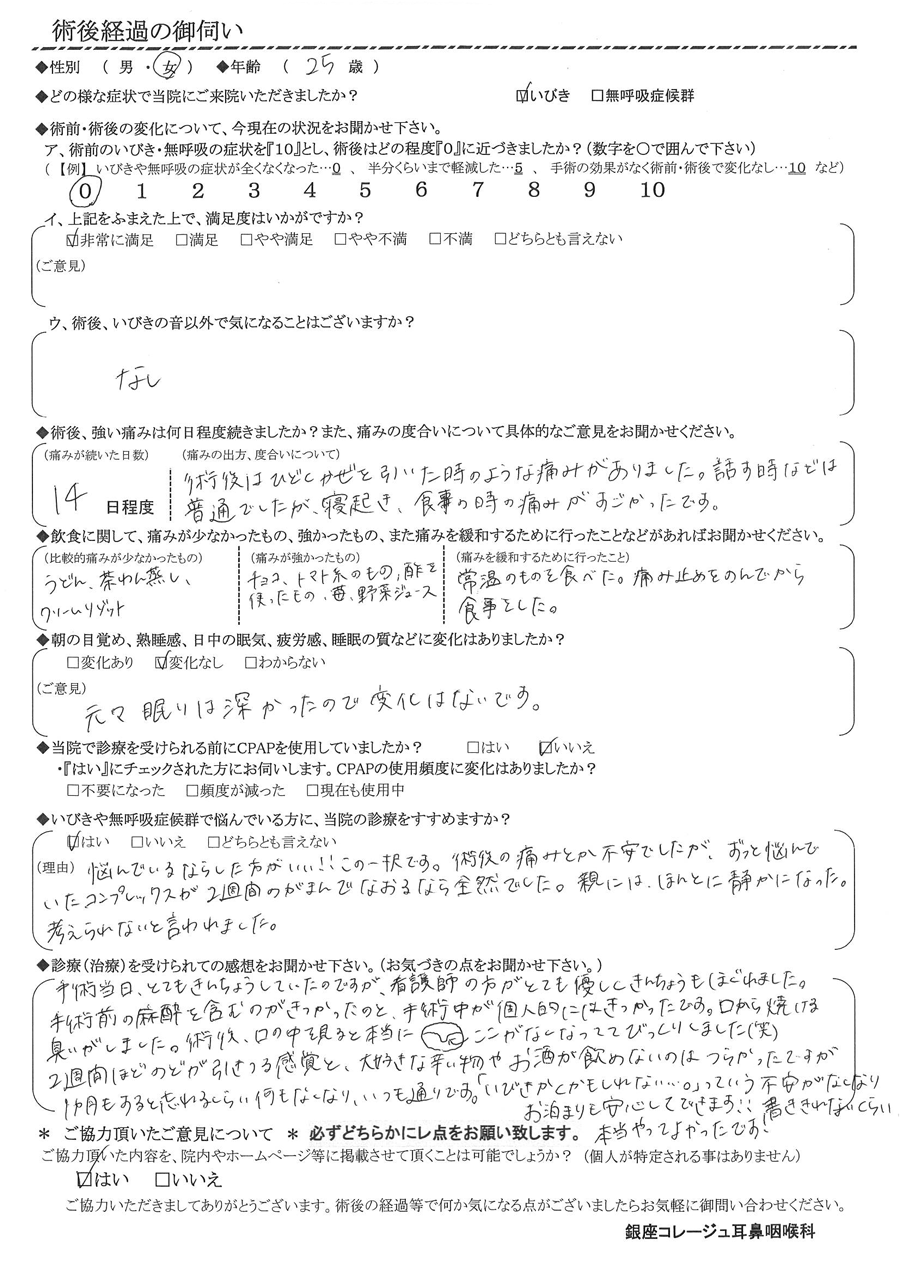 術後経過の御伺い
◆性別 ( 男 ・ 女 ) ◆年齢 ( 25 歳 )
◆どの様な症状で当院にご来院いただきましたか? ☑いびき □無呼吸症候群
◆術前・術後の変化について、今現在の状況をお聞かせ下さい。
ア、術前のいびき・無呼吸の症状を『10』とし、術後はどの程度『0』に近づきましたか?(数字を〇で囲んで下さい)
(【例】いびきや無呼吸の症状が全くなくなった…0 、 半分くらいまで軽減した…5 、 手術の効果がなく術前・術後で変化なし…10 など)
0 1 2 3 4 5 6 7 8 9 10
イ、上記をふまえた上で、満足度はいかがですか?
☑非常に満足 □満足 □やや満足 □やや不満 □不満 □どちらとも言えない
(ご意見)
ウ、術後、いびきの音以外で気になることはございますか?
なし
◆術後、強い痛みは何日程度続きましたか?また、痛みの度合いについて具体的なご意見をお聞かせください。
(痛みが続いた日数) (痛みの出方、度合いについて)
術後はひどくかぜを引いた時のような痛みがありました。話す時などは
14 日程度 普通でしたが、寝起き、食事の時の痛みがすごかったです。
◆飲食に関して、痛みが少なかったもの、強かったもの、また痛みを緩和するために行ったことなどがあればお聞かせください。
(比較的痛みが少なかったもの) (痛みが強かったもの) (痛みを緩和するために行ったこと)
うどん、茶わん蒸し、 チョコ、トマト系のもの、酢を 常温のものを食べた。痛み止めをのんでから
クリームリゾット 使ったもの、苺、野菜ジュース 食事をした。
◆朝の目覚め、熟睡感、日中の眠気、疲労感、睡眠の質などに変化はありましたか?
□変化あり ☑変化なし □わからない
(ご意見)
元々眠りは深かったので変化はないです。
◆当院で診療を受けられる前にCPAPを使用していましたか? □はい ☑いいえ
・『はい』にチェックされた方にお伺いします。CPAPの使用頻度に変化はありましたか?
□不要になった □頻度が減った □現在も使用中
◆いびきや無呼吸症候群で悩んでいる方に、当院の診療をすすめますか?
☑はい □いいえ □どちらとも言えない
(理由) 悩んでいるならした方がいい!!この一択です。術後の痛みとか不安でしたが、ずっと悩んで
いたコンプレックスが2週間のがまんでなおるなら全然でした。親には、ほんとに静かになった。
考えられないと言われました。
◆診療(治療)を受けられての感想をお聞かせ下さい。(お気づきの点をお聞かせ下さい。)
手術当日、とてもきんちょうしていたのですが、看護師の方がとても優しくきんちょうもほぐれました。
手術前の麻酔を含むのがきつかったのと、手術中が個人的にはきつかったです。口から焼ける
臭いがしました。術後、口の中を見ると本当に ここがなくなっててびっくりしました(笑)
2週間ほどのどが引きつる感覚と、大好きな辛い物やお酒が飲めないのはつらかったですが
1カ月もすると忘れるくらい何もなくなり、いつも通りです。「いびきかくかもしれない…。」っていう不安がなくなり
お泊まりも安心してできます!!書ききれないくらい
本当やってよかったです。
＊ ご協力頂いたご意見について ＊ 必ずどちらかにレ点をお願い致します。
ご協力頂いた内容を、院内やホームページ等に掲載させて頂くことは可能でしょうか? (個人が特定される事はありません)
☑はい □いいえ
ご協力いただきましてありがとうございます。術後の経過等で何か気になる点がございましたらお気軽に御問い合わせください。
銀座コレージュ耳鼻咽喉科